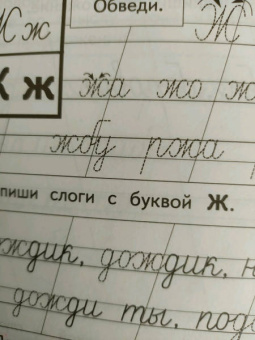 Обведи.
Ж ж Ж
ж жа жо ж
жбу ржа
пиши слоги с буквой Ж.
ждик, дождик,
дожди ты, под